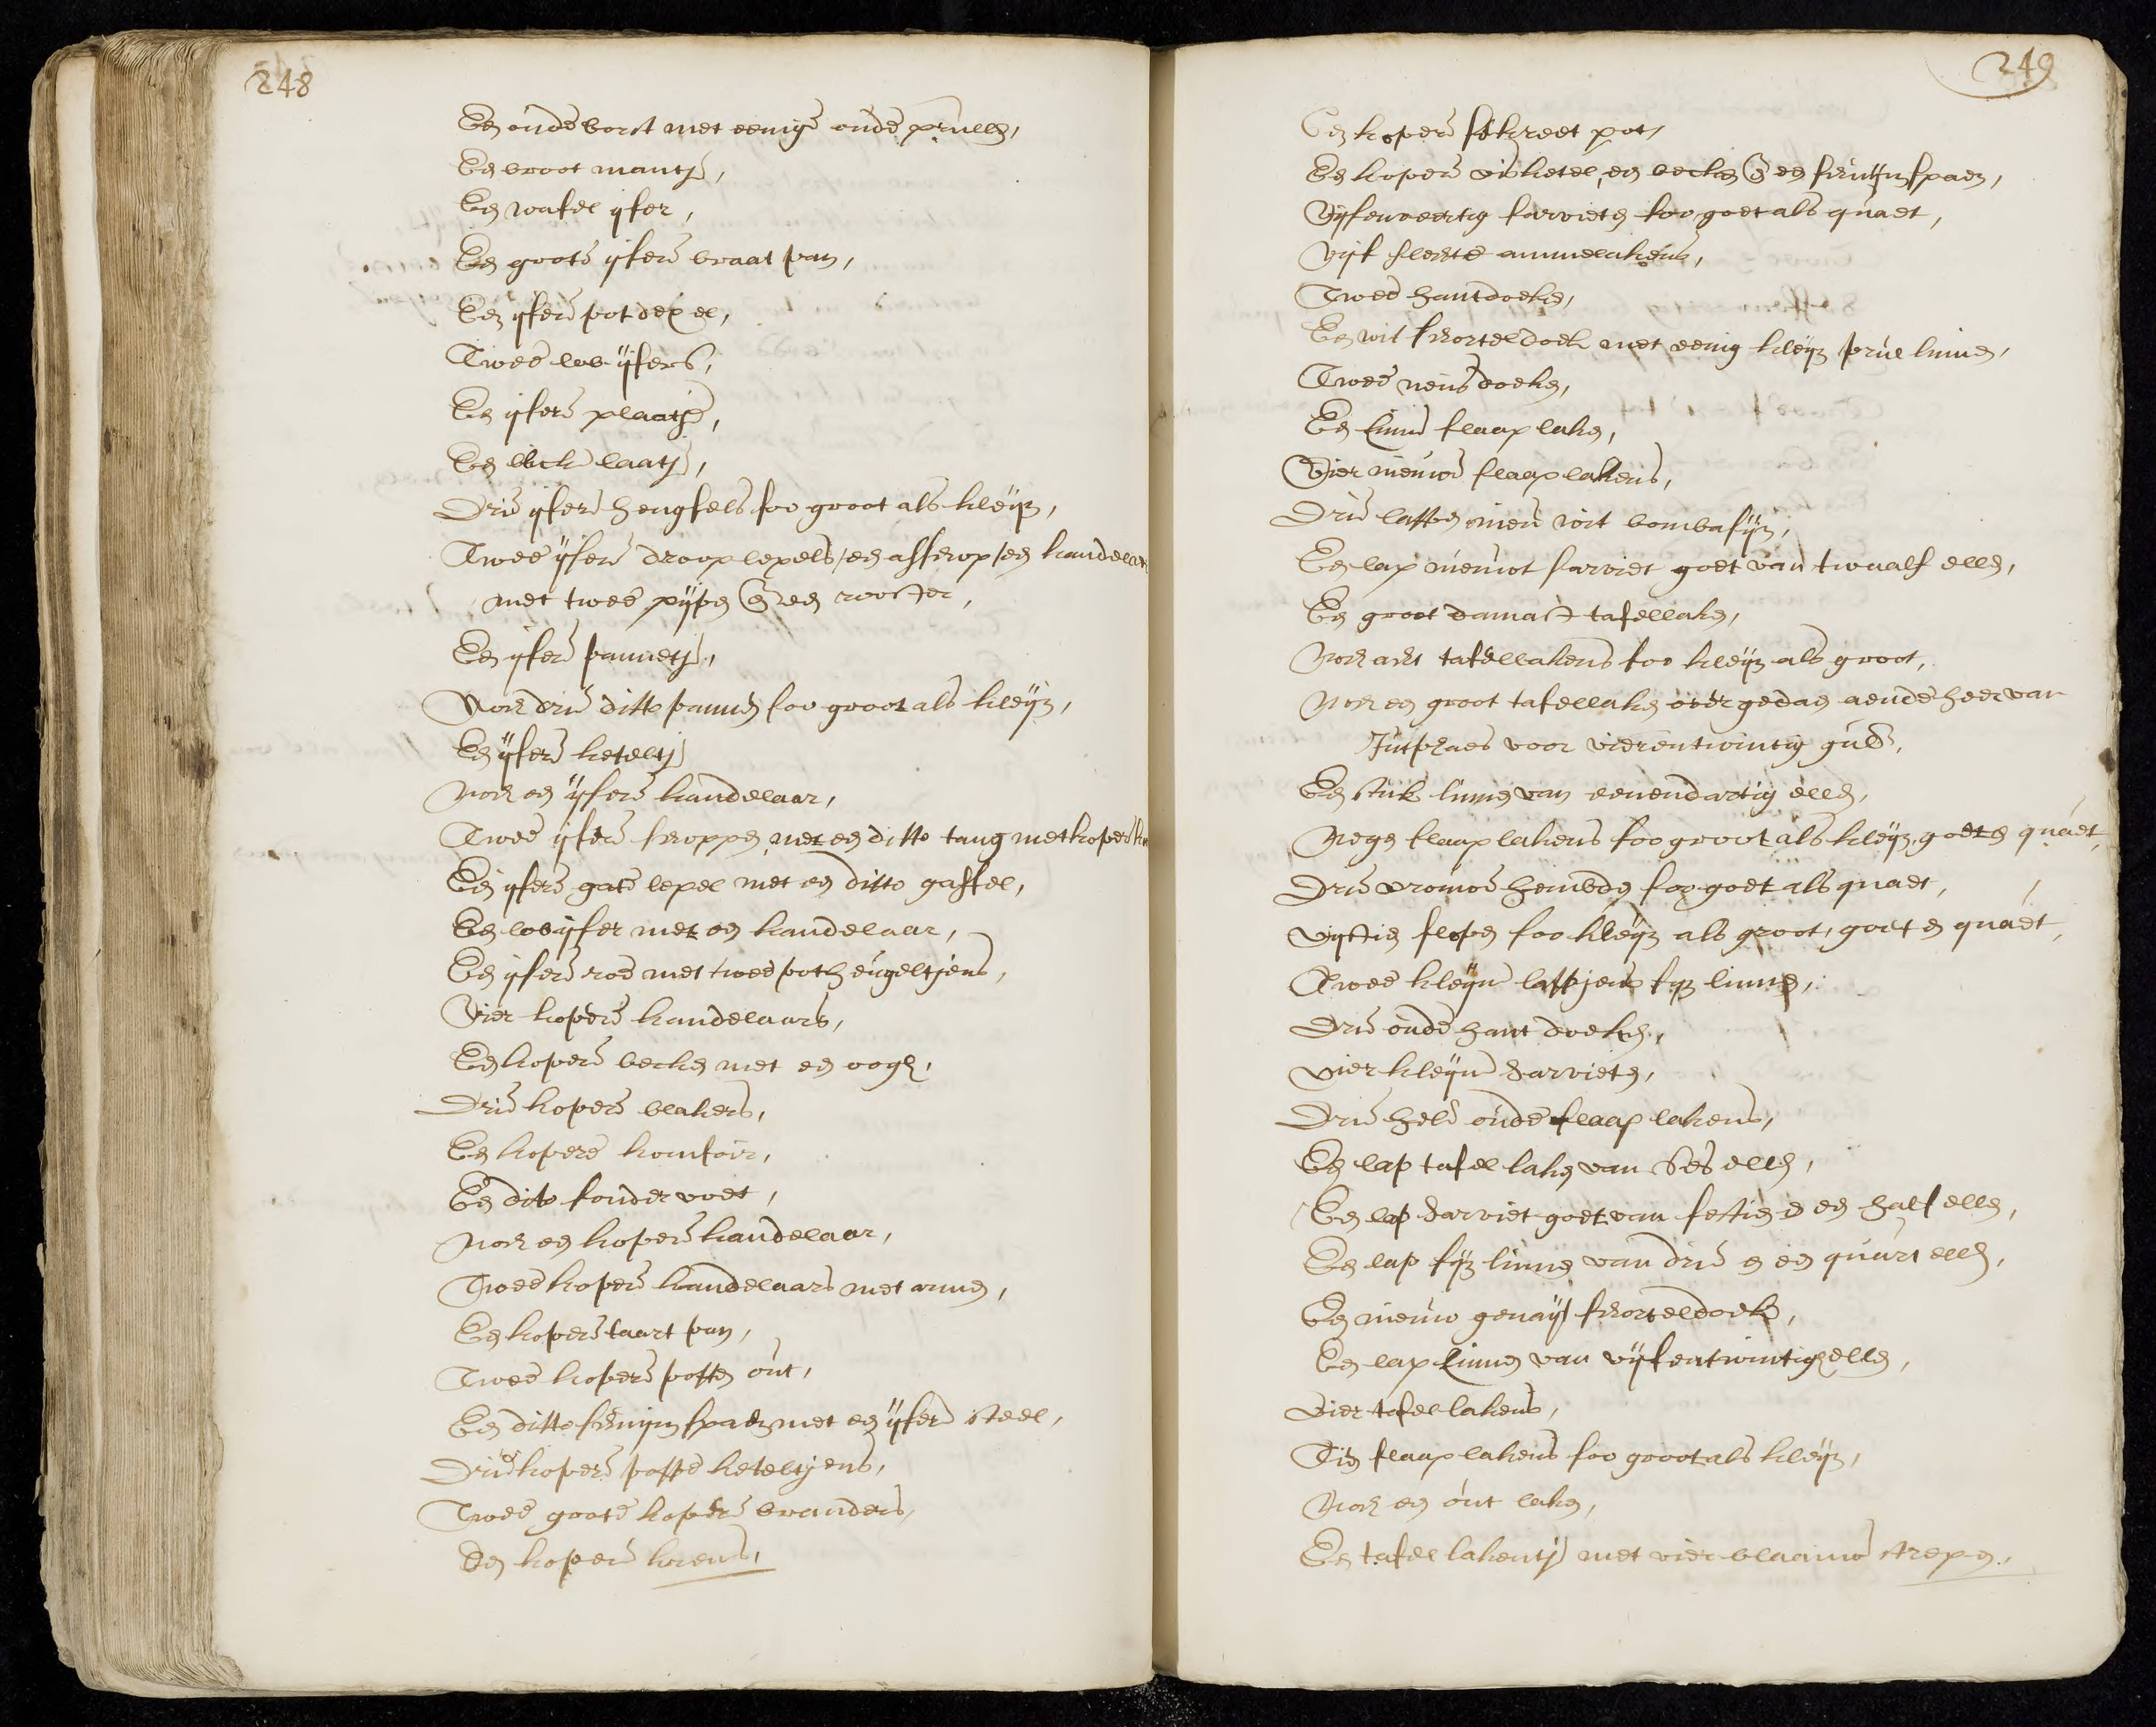 248
Een oude borst met eenige oude prullen,
Een broot mantje,
Een wafel ijser,
Een groote ijsere braat pan,
Een ijsere pot dexel,
Twee lob ijsers,
Een ijsere plaatje,
Een blick laatje,
Drie ijsere hengsels soo groot als kleijn,
Twee ijsere drooplepels, een asschop, een kandelaar
met twee pijpen en een rooster,
Een ijsere pannetje,
Noch drie ditto pannen soo groot als kleijn,
Een ijsere keteltje
Noch een ijsere kandelaar,
Twee ijsere schoppen, met een ditto tang met koper
Een ijsere gate lepel met een ditto gaffel,
Een lobijser met een kandelaar,
Een ijsere roe met twee potheugeltjens,
Vier kopere kandelaars,
Een kopere becken met een oogh,
Drie kopere blakers,
Een kopere komfoir,
Een dito sonder voet,
Noch een kopere kandelaar,
Twee kopere kandelaars met armen,
Een kopere taart pan,
Twee kopere potten out,
Een ditto schuijm spaen met een ijsere steel,
Drie kopere potte keteltjens,
Twee groote kopere branders,
Een kopere kroens,
249
Een kopere sekreet pot,
Een kopere visketel, een becken en een schuijmspaen,
Vijfenveertig servieten soo goet als quaet,
Vijf slechte ammelakens,
Twee hantdoeken,
Een wit schorteldoek met eenig kleijn prul linnen,
Twee neusdoeken,
Een linne slaaplaken,
Vier nieuwe slaaplakens,
Drie lappen nieu wit bombasijn,
Een lap nieuwt serviet goet van twaalf ellen,
Een groot damast tafellaken,
Noch acht tafellakens soo kleijn als groot,
Noch een groot tafellaken overgedaen aende heer van
Jutphaes voor vierentwintig guld,
Een stuk linnen van eenendartig ellen,
Negen slaaplakens soo groot als kleijn, goet en quaet,
Drie vrouwe hembden soo goet als quaet,
Vijftien slopen soo kleijn als groot, goet en quaet,
Twee kleijne lappjens fijn linnen,
Drie oude hant doeken,
Vier kleijne servieten,
Drie hele oude slaaplakens,
Een lap tafel laken van ses ellen,
Een lap serviet goet van sestien en een half ellen,
Een lap fijn linnen van drie en een quart ellen,
Een nieuw genaijt schorteldoek,
Een lap linnen van vijfentwintigh ellen,
Vier tafellakens,
Tien slaaplakens soo groot als kleijn,
Noch een out laken,
Een tafellakentje met vier blaauwe strepen,